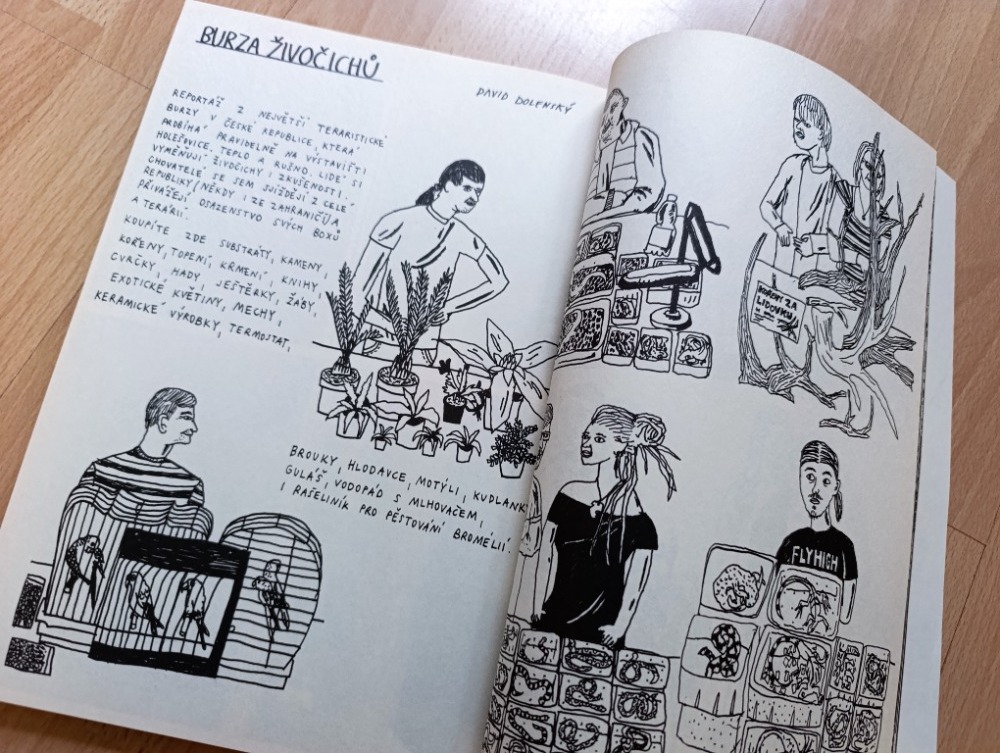 BURZA ŽIVOČICHŮ
DAVID DOLENSKÝ
REPORTÁŽ Z NEJVĚTŠÍ TERARISTICKÉ
BURZY V ČESKÉ REPUBLICE, KTERÁ
PROBÍHÁ PRAVIDELNĚ NA VÝSTAVIŠTI
HOLEŠOVICE. TEPLO A RUŠNO. LIDÉ SI
VYMĚŇUJÍ ŽIVOČICHY I ZKUŠENOSTI.
CHOVATELÉ SE SEM SJÍŽDĚJÍ Z CELÉ
REPUBLIKY/NĚKDY I ZE ZAHRANIČÍ/A
PŘIVÁŽEJÍ OSAZENSTVO SVÝCH BOXŮ
A TERÁRIÍ.
KOUPÍTE ZDE SUBSTRÁTY, KAMENY,
KOŘENY, TOPENÍ, KRMENÍ, KNIHY,
CVRČKY, HADY, JEŠTĚRKY, ŽÁBY,
EXOTICKÉ KVĚTINY, MECHY,
KERAMICKÉ VÝROBKY, TERMOSTAT,
BROUKY, HLODAVCE, MOTÝLI, KUDLANK
GULÁŠ, VODOPÁD S MLHOVAČEM,
I RAŠELINÍK PRO PĚSTOVÁNÍ BROMÉLIÍ.
KOŘENY ZA
LIDOVKU
FLYHIGH